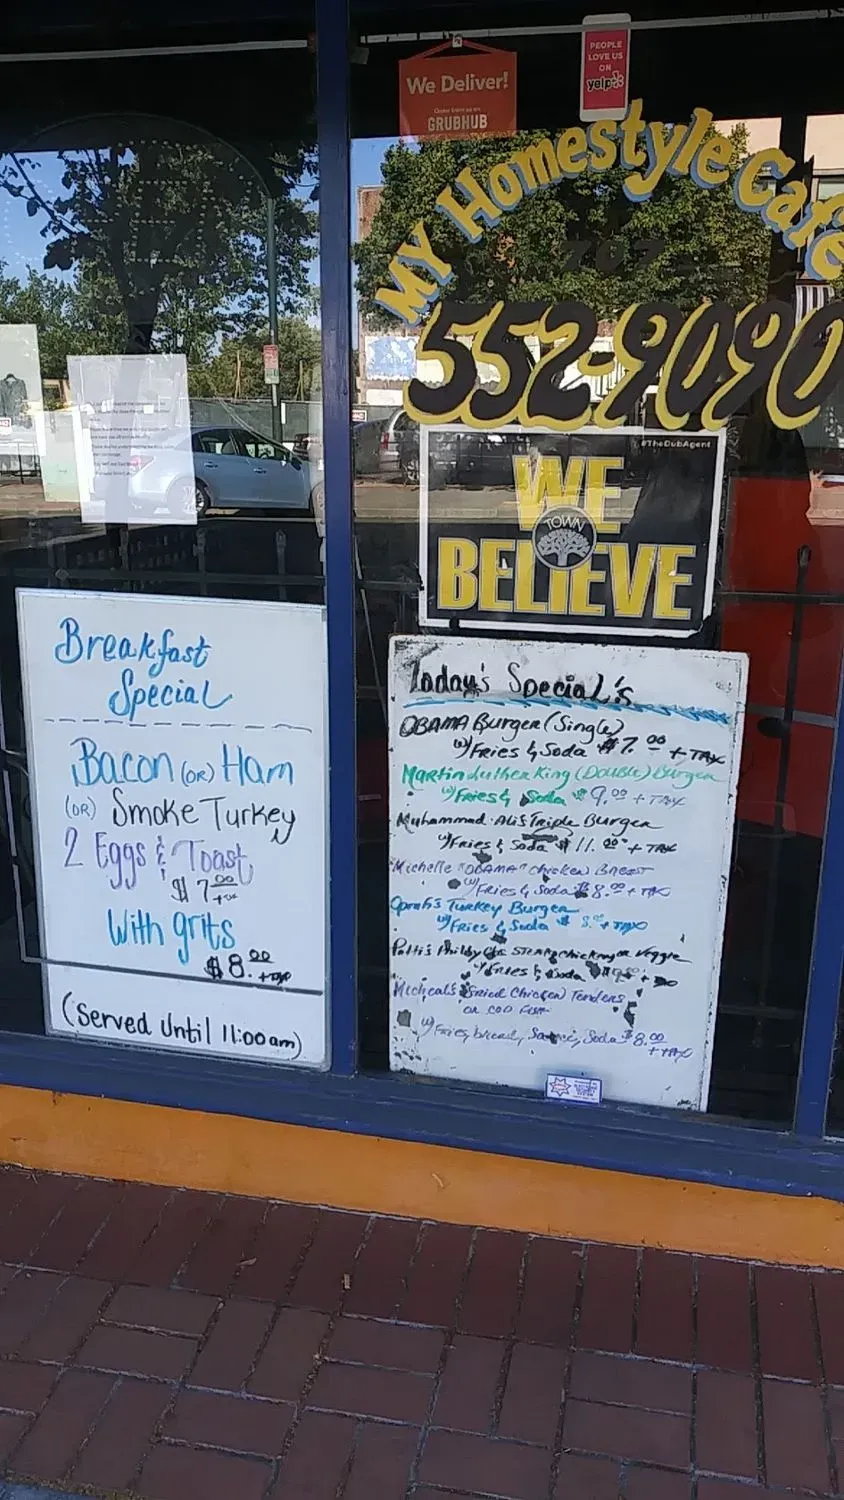 We Deliver!
GRUBHUB
PEOPLE
LOVE US
ON
yelp
MY Homestyle Cafe
707
552-9090
#TheDubAgent
WE
TOWN
BELIEVE
Breakfast
Special
Bacon (OR) Ham
(OR) Smoke Turkey
2 Eggs & Toast
$ 7.00
+ tax
With grits
$8.00 + TAX
(Served Until 11:00am)
Today's Special's
OBAMA Burger (Single)
w/ Fries & Soda $7.00 + TAX
Martin Luther King (Double) Burger
w/ Fries & Soda $ 9.00 + TAX
Muhammad Ali's Triple Burger
w/ Fries & Soda $ 11.00 + TAX
Michelle "OBAMA" Chicken Breast
w/ Fries & Soda $8.00 + TAX
Oprah's Turkey Burger
w/ Fries & Soda $ + TAX
Patti's Philly
w/ Fries & Soda
Micheal's Fried Chicken Tenders
or COD Fish
w/ Fries, bread, Sauce, Soda $8.00
+ TAX